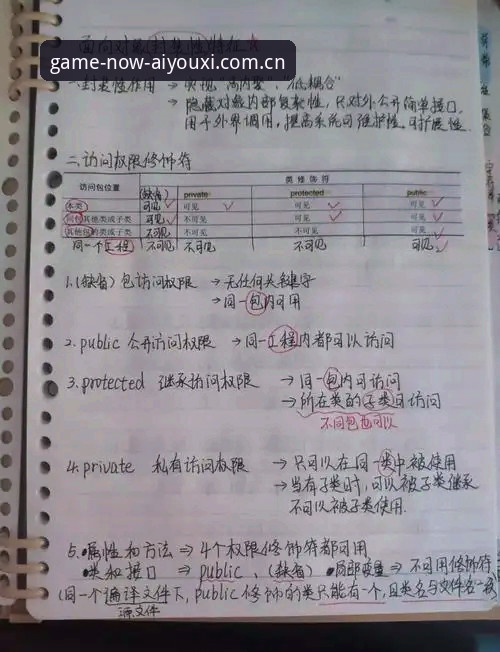 面向对象(封装性)特征 ☆
game-now-aiyouxi.com-cn
一.封装性作用 → 实现"高内聚","低耦合"
→ 隐藏对象内部复杂性,只对外公开简单接口.
用于外界调用,提高系统可维护性,可扩展性
二.访问权限修饰符
访问包位置 类修饰符
(缺省) private protected public
本类 可见✓ 可见✓ 可见✓ 可见✓
同包其他类或子类 可见✓ 不可见 可见✓ 可见✓
其他包的类或子类 不可见 不可见 不可见 可见✓
同一个工程 不可见 不可见 不可见 可见✓
1.(缺省)包访问权限 → 无任何关键字
→ 同一包内可用
2. public 公开访问权限 → 同一工程内都可以访问
3. protected 继承访问权限 → 同一包内可访问
→ 所在类的子类可访问
不同包也可以
4. private 私有访问权限 → 只可以在同一类中被使用
→ 当有子类时,可以被子类继承
不可以被子类使用.
5.•属性和方法 ⇒ 4个权限修饰符都可用
•类和接口 ⇒ public、(缺省) •局部变量 ⇒ 不可用修饰符
(同一个编译文件下,public修饰的类只能有一个,且类名与文件名一致
源文件